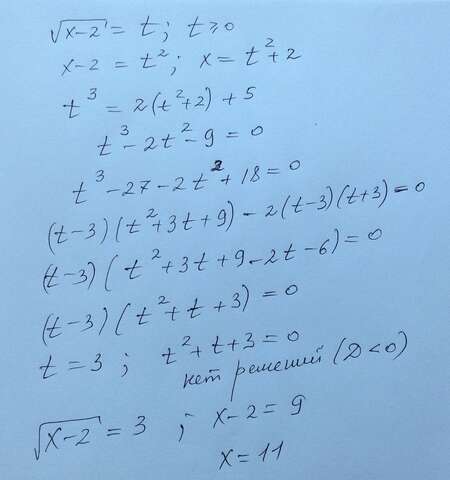 √(x-2) = t; t≥0
x-2 = t²; x = t²+2
t³ = 2(t²+2) + 5
t³-2t²-9 = 0
t³-27-2t²+18=0
(t-3)(t²+3t+9)-2(t-3)(t+3)=0
(t-3)(t²+3t+9-2t-6)=0
(t-3)(t²+t+3)=0
t=3; t²+t+3=0
нет решений (D<0)
√(x-2) = 3; x-2=9
x=11